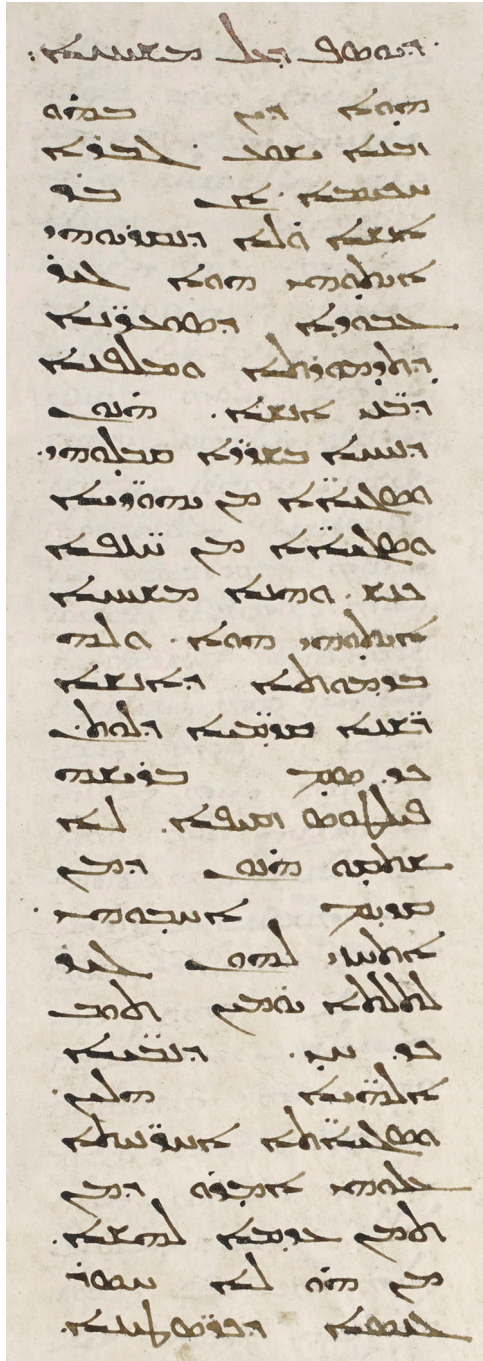 ܕܝܘܣܦ ܕܥܠ ܡܫܝܚܐ܀
ܗܘܐ ܕܝܢ ܒܗܘ
ܙܒܢܐ ܝܫܘܥ ܓܒܪܐ
ܚܟܝܡܐ ܐܢ ܒܪ
ܐܢܫܐ ܘܠܐ ܕܢܩܪܝܘܗܝ
ܐܝܬܘܗܝ ܗܘܐ ܓܝܪ
ܥܒܘܕܐ ܕܣܘܥܪ̈ܢܐ
ܘܡܠܦܢܐ
ܕܒܢܝ ܐܢܫܐ. ܗܢܘܢ
ܒܫܪܪܐ
ܘܣܓܝ̈ܐܐ ܡܢ ܝܗܘܕ̈ܝܐ
ܘܣܓܝ̈ܐܐ ܡܢ ܚܢ̈ܦܐ
ܘܗܢܐ ܡܫܝܚܐ
ܐܝܬܘܗܝ ܗܘܐ. ܘܠܗ
ܕܐܢܫܐ
ܪ̈ܫܢܐ ܩܕ̈ܡܝܐ ܕܠܘܬܢ
ܟܕ ܣܡ ܒܪܝܫܗ
ܦܝܠܛܘܣ ܙܩܝܦܐ. ܠܐ
ܫܬܩܘ ܗܢܘܢ ܕܡܢ
ܩܕܝܡ ܐܚܒܘܗܝ.
ܐܬܚܙܝ ܠܗܘܢ ܓܝܪ
ܠܬܠܬܐ ܝܘܡܝܢ ܬܘܒ
ܟܕ ܚܝ. ܕܢܒܝ̈ܐ
ܐܠܗ̈ܝܐ ܗܠܝܢ.
ܘܣܓܝ̈ܐܬܐ ܐܚܪ̈ܢܝܬܐ
ܥܠܘܗܝ ܐܡܪܘ ܕܡܢ
ܬܡܢ ܥܕܡܐ ܠܗܫܐ.
ܡܢ ܗܘ ܠܐ ܚܣܪ
ܓܢܣܐ ܕܟܪ̈ܣܛܝܢܐ.